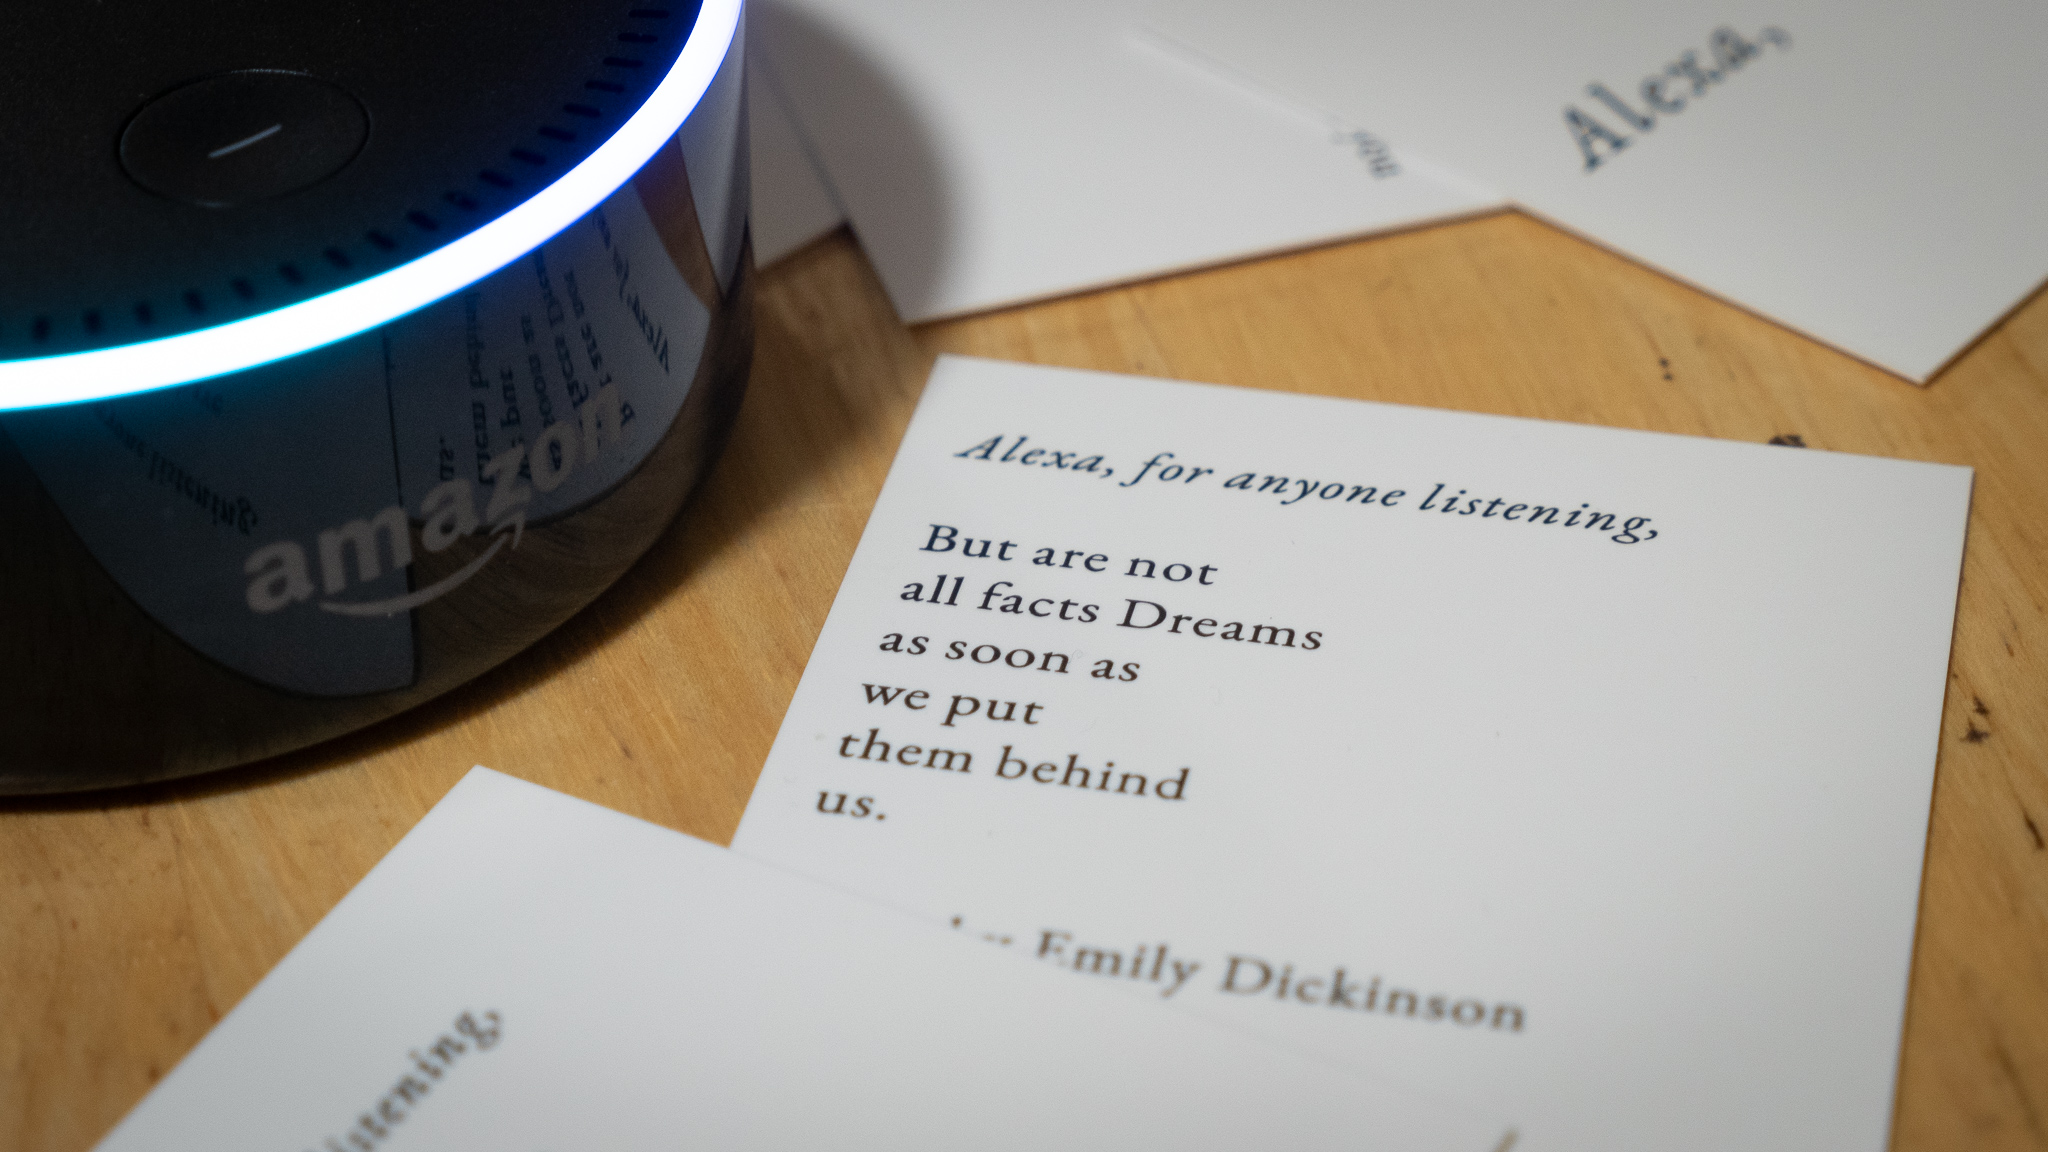 Alexa,
amazon
Alexa, for anyone listening,
But are not
all facts Dreams
as soon as
we put
them behind
us.
Emily Dickinson
listening,